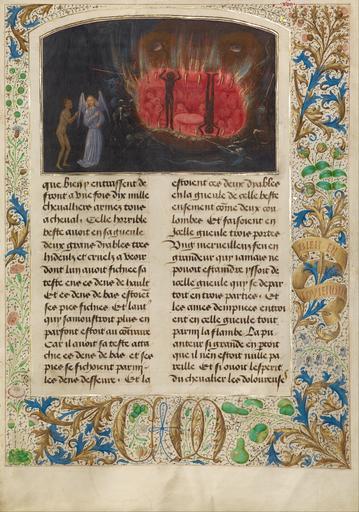 que bien y entraissent de
front a une fois dix mille
chevalliers armes tous
a cheval. Celle horrible
beste avoit en sa gueule
deux grans dyables tres
hideux et cruelz a veoir
dont lun avoit fichee sa
teste ens es dens de hault
Et es dens de bas estoient
ses piez fichies. Et lautre
qui se monstroit plus en
parfont estoit au contraire
Car il avoit sa teste atta
chie es dens de bas et ses
piez se fichoient parmy
les dens desseure. Et la
estoient ces deux dyables
en la gueule de celle beste
ensement come deux cou
lombes Et faisoient en
ycelle gueule trois portes
Ung merveilleux feu en
grandeur qui jamais ne
pouoit estaindre yssoit de
ycelle gueule qui se depar
toit en trois parties. Et
les ames dempnees entroi
ent en celle gueule tout
parmy la flambe. La pu
anteur si grande en yssoit
que il nen estoit nulle pa
reille Et si ouoit lesperit
du chevalier les doloureuses
CM